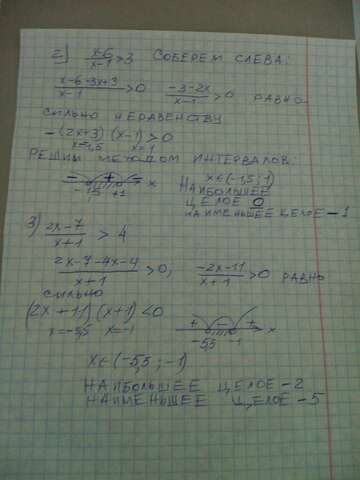 2) x-6/x-1 > 3 СОБЕРЕМ СЛЕВА:
x-6-3x+3/x-1 > 0 -3-2x/x-1 > 0 РАВНО-
СИЛЬНО НЕРАВЕНСТВУ
-(2x+3)(x-1) > 0
x=-1,5 x=1
РЕШИМ МЕТОДОМ ИНТЕРВАЛОВ:
- + - x x∈(-1,5; 1)
-1,5 +1 НАИБОЛЬШЕЕ
ЦЕЛОЕ 0
НАИМЕНЬШЕЕ ЦЕЛОЕ -1
3) 2x-7/x+1 > 4
2x-7-4x-4/x+1 > 0, -2x-11/x+1 > 0 РАВНО
СИЛЬНО
(2x+11)(x+1) < 0 + - + x
x=-5,5 x=-1 -5,5 -1
x∈(-5,5; -1)
НАИБОЛЬШЕЕ ЦЕЛОЕ -2
НАИМЕНЬШЕЕ ЦЕЛОЕ -5